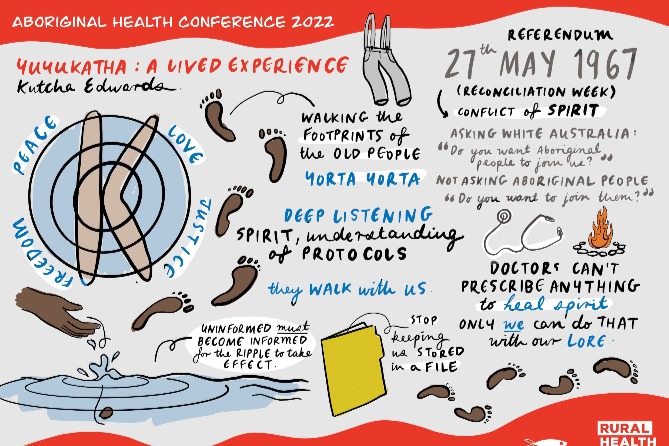 ABORIGINAL HEALTH CONFERENCE 2022
YUYUKATHA : A LIVED EXPERIENCE
Kutcha Edwards
PEACE
LOVE
JUSTICE
FREEDOM
WALKING the
FOOTPRINTS of
the OLD PEOPLE
YORTA YORTA
DEEP LISTENING
SPIRIT, understanding
of PROTOCOLS
they WALK with US.
UNINFORMED must
BECOME INFORMED
for the RIPPLE to take
EFFECT.
STOP
keeping
us STORED
in a FILE
REFERENDUM
27th MAY 1967
(RECONCILIATION WEEK)
CONFLICT of SPIRIT
ASKING WHITE AUSTRALIA:
"Do you want Aboriginal
people to join us?"
NOT ASKING ABORIGINAL PEOPLE
"Do you want to join them?"
DOCTORS CAN'T
PRESCRIBE ANYTHING
to heal spirit
ONLY we can do THAT
with our LORE.
RURAL
HEALTH